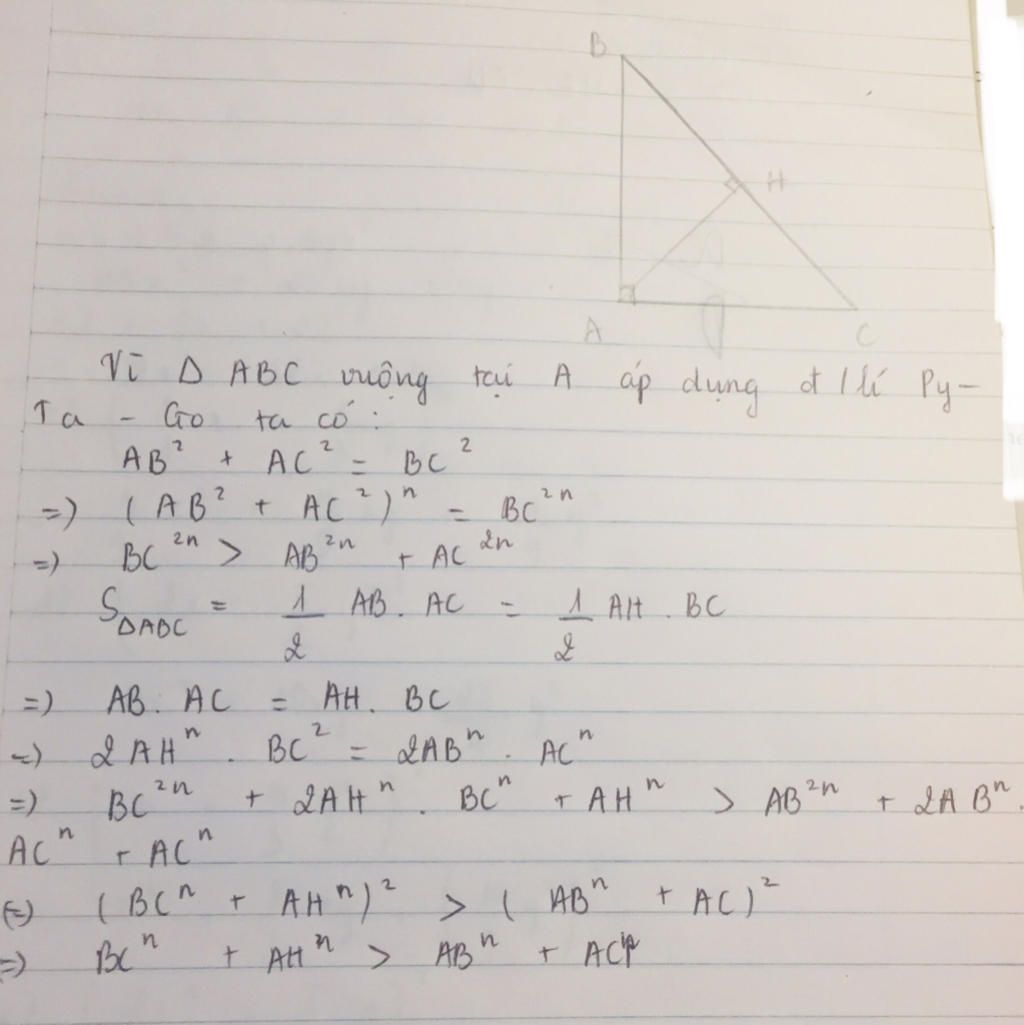 B
H
A
C
Vì Δ ABC vuộng tại A áp dụng đ/lí Py-
Ta - Go ta có:
AB² + AC² = BC²
=) (AB² + AC²)ⁿ = BC²ⁿ
=) BC²ⁿ > AB²ⁿ + AC²ⁿ
S_ΔABC = 1/2 AB . AC = 1/2 AH . BC
=) AB . AC = AH . BC
=) 2AHⁿ . BC² = 2ABⁿ . ACⁿ
=) BC²ⁿ + 2AHⁿ . BCⁿ + AHⁿ > AB²ⁿ + 2ABⁿ .
ACⁿ + ACⁿ
(=) (BCⁿ + AHⁿ)² > (ABⁿ + AC)²
=) BCⁿ + AHⁿ > ABⁿ + ACⁿ